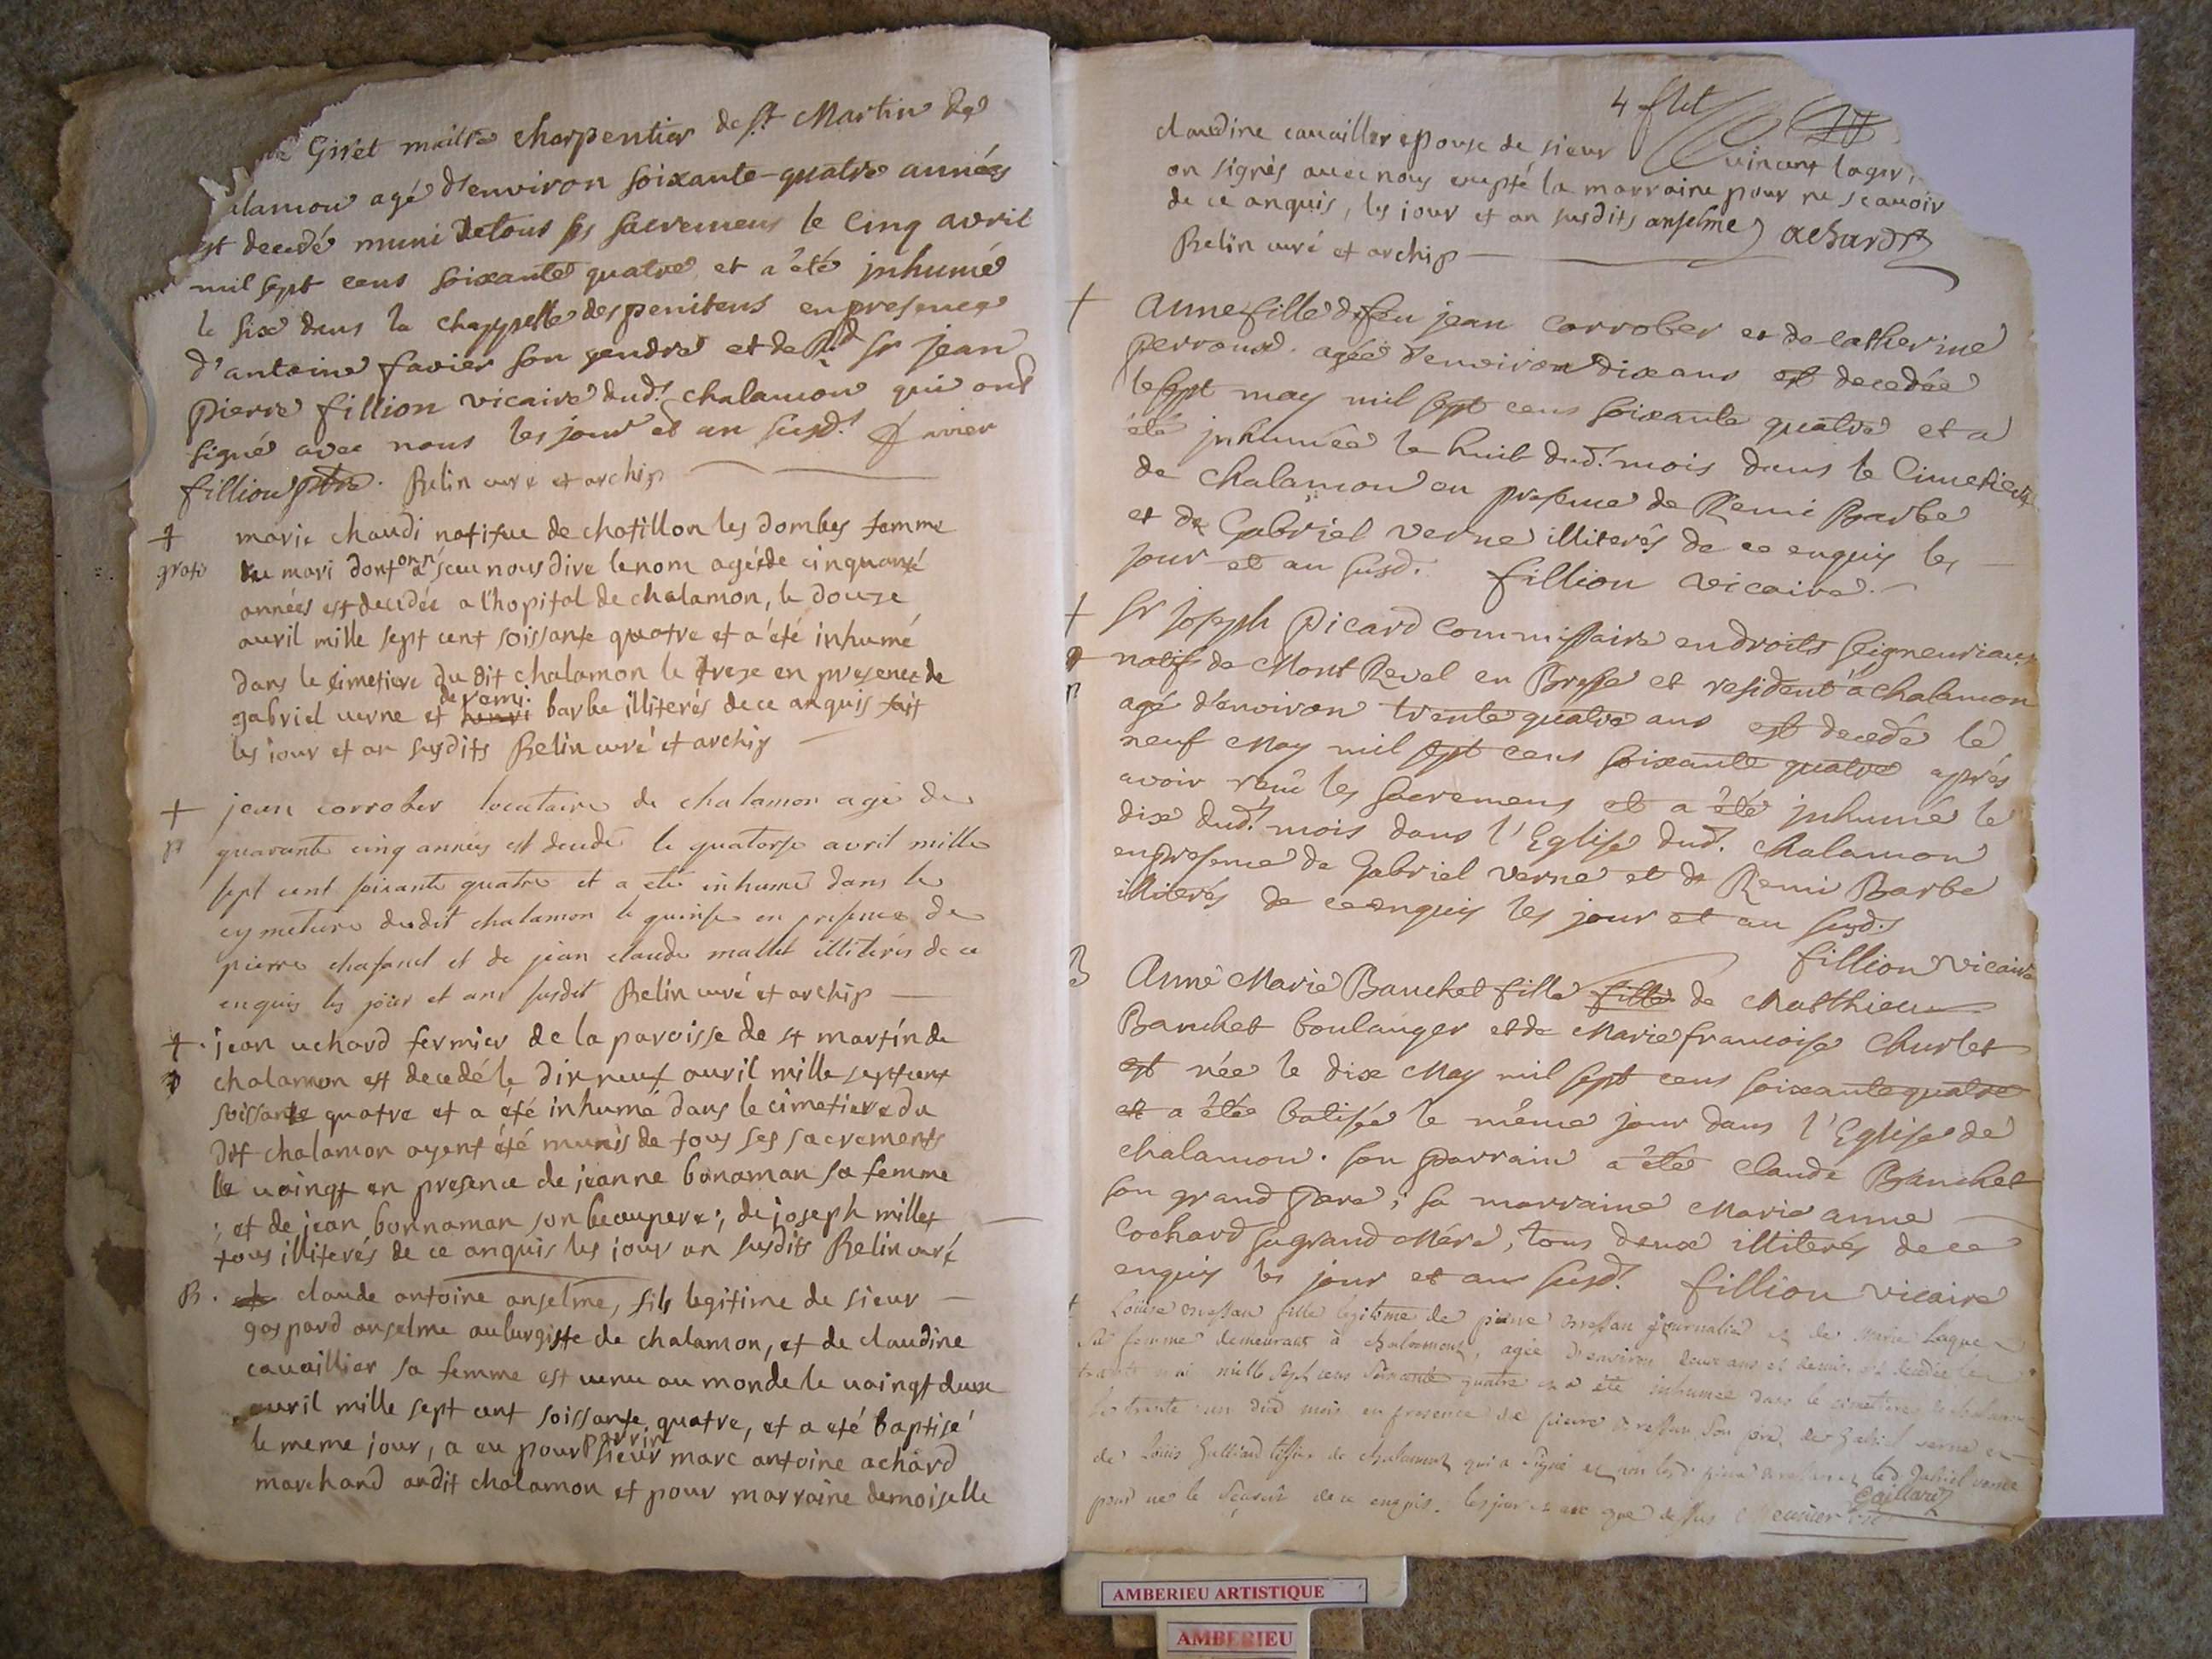 Giret maitre charpentier de St Martin de
alamon agé d'environ soixante-quatre années
est decedé muni de tous ses sacremens le cinq avril
mil sept cens soixante quatre et a été inhumé
le six dans la chappelle des penitens en presence
d'antoine favier son gendre et de Rd Sr jean
pierre fillion vicaire dud. chalamon qui ont
signé avec nous les jour et an susd. favier
fillion ptre. Relin curé et archip
+ marie chaudi natifue de chatillon les dombes femme
gratis mari dont on n'a sceu nous dire le nom agée de cinquante
années est decedée a l'hopital de chalamon, le douze
auril mille sept cent soissante quatre et a été inhumé
dans le cimetiere du dit chalamon le treze en presence de
gabriel uerne et henri de remi barbe illiterés de ce anquis fait
les iour et an susdits Relin curé et archip
+ jean corrober locataire de chalamon agé de
quarante cinq années est decedé le quatorse avril mille
sept cent soixante quatre et a eté inhumé dans le
cymetiere dudit chalamon le quinse en presence de
pierre chafanel et de jean claude mallet illiterés de ce
enquis les jour et ans susdit Relin curé et archip
+ jean achard fermier de la paroisse de st martin de
chalamon est decedé le dix neuf auril mille sept cent
soissante quatre et a été inhumé dans le cimetiere du
dit chalamon ayent été munis de tous ses sacrements
le uaingt en presence de jeanne bonaman sa femme
; et de jean bonnaman son beaupere ; de joseph millet
tous illiterés de ce anquis les jour an susdits Relin curé
B. claude antoine anselme, fils legitime de sieur
gaspard anselme aubergiste de chalamon, et de claudine
cauaillier sa femme est uenu au monde le uaingt deux
auril mille sept cent soissante quatre, et a eté baptisé
le meme jour, a eu pour parrin sieur marc antoine achard
marchand audit chalamon et pour marraine demoiselle
4
claudine cauailler epouse de sieur uincent lager,
on signés auec nous exepté la marraine pour ne scauoir
de ce anquis, les iour et an susdits anselme achard
Relin curé et archip
+ Anne fille de feu jean corrober et de catherine
perroux. agée d'environ dix ans est decedée
le sept may mil sept cens soixante quatre et a
été inhumée le huit dud. mois dans le cimetiere
de chalamon en presence de Remi Barbe
et de Gabriel verne illiterés de ce enquis les
jour et an susd. fillion vicaire.
+ Sr joseph picard commissaire en droits seigneuriaux
natif de Mont Revel en Bresse et resident à chalamon
agé d'environ trente quatre ans est decedé le
neuf May mil sept cens soixante quatre après
avoir reçû les sacremens et a été inhumé le
dix dud. mois dans l'Eglise dud. chalamon
en presence de Gabriel verne et de Remi Barbe
illiterés de ce enquis les jour et an susd.
fillion vicaire
B Anne Marie Banchet fille fille de Matthieu
Banchet boulanger et de Marie francoise Churlet
est née le dix May mil sept cens soixante quatre
et a été batisée le même jour dans l'Eglise de
chalamon. son parrain a été Claude Banchet
son grand Pere ; sa marraine Marie anne
Cochard sa grand Mére, tous deux illiterés de ce
enquis les jour et an susd. fillion vicaire
Louise fille legitime de pierre journalier et de Marie Laque
sa femme demeurant à chalamont, agée d'environ deux ans et demi est decedée le
trente mai mille sept cens soixante quatre et a été inhumée dans le cimetiere de chalamon
le trente un dud mois en presence de pierre son pere, de Gabriel verne et
de Louis Galliard de chalamont qui a signé et non led. pierre et led. Gabriel verne
pour ne le sçavoir de ce enquis. les jour et an que dessus
Gaillard
AMBERIEU ARTISTIQUE
AMBERIEU